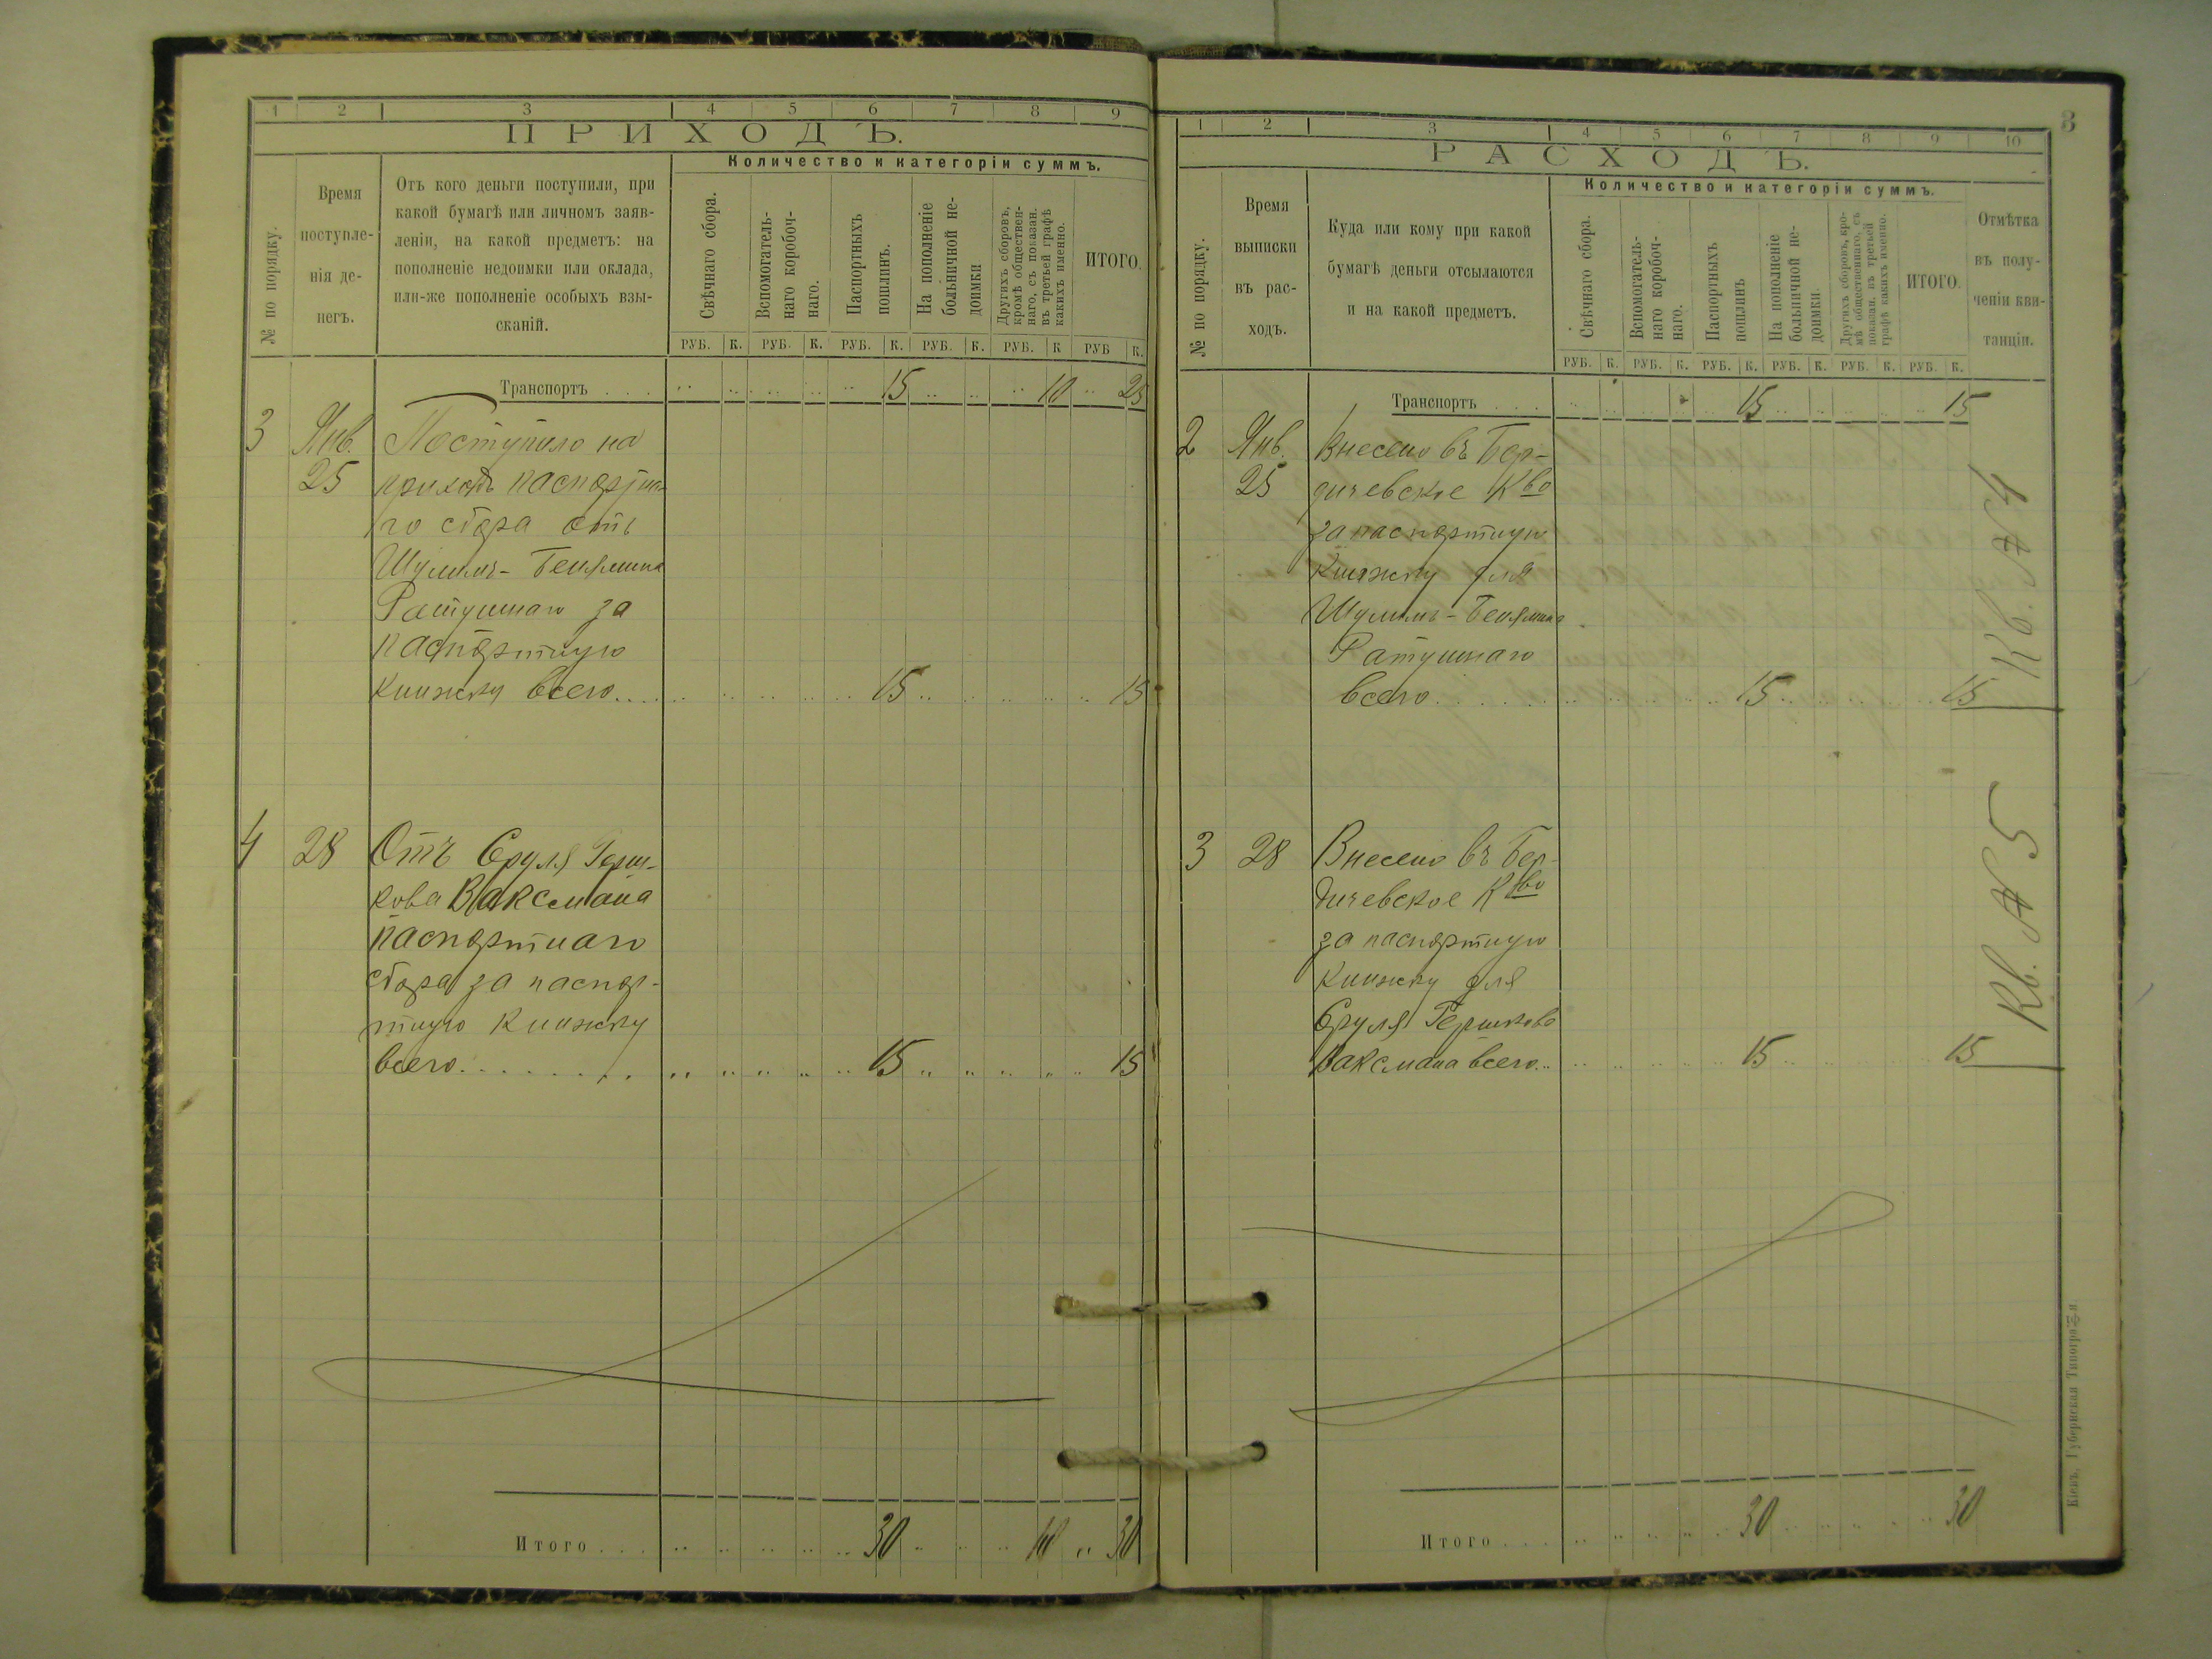 1 2 3 4 5 6 7 8 9
ПРИХОДЪ.
№ по порядку.
Время
поступле-
нія де-
негъ.
Отъ кого деньги поступили, при
какой бумагѣ или личномъ заяв-
леніи, на какой предметъ: на
пополненіе недоимки или оклада,
или-же пополненіе особыхъ взы-
сканій.
Количество и категоріи суммъ.
Свѣчнаго сбора.
Вспомогатель-
наго коробоч-
наго.
Паспортныхъ
пошлинъ.
На пополненіе
больничной не-
доимки
Другихъ сборовъ,
кромѣ обществен-
наго, съ показан.
въ третьей графѣ
какихъ именно.
ИТОГО.
РУБ. К. РУБ. К. РУБ. К. РУБ. К. РУБ. К РУБ К.
Транспортъ . . . 15 10 25
3 Янв. Поступило на
25 приходъ паспортна-
го сбора отъ
Шулимъ-Бенямина
Ратушнаго за
паспортную
книжку всего.... 15 15
4 28 Отъ Сруля Герш-
кова Ваксмана
паспортнаго
сбора за паспор-
тную книжку
всего......... 15 15
Итого . . . 30 10 30
3
1 2 3 4 5 6 7 8 9 10
РАСХОДЪ.
№ по порядку.
Время
выписки
въ рас-
ходъ.
Куда или кому при какой
бумагѣ деньги отсылаются
и на какой предметъ.
Количество и категоріи суммъ.
Свѣчнаго сбора.
Вспомогатель-
наго коробоч-
наго.
Паспортныхъ
пошлинъ
На пополненіе
больничной не-
доимки.
Другихъ сборовъ, кро-
мѣ общественнаго, съ
показан. въ третьей
графѣ какихъ именно.
ИТОГО.
Отмѣтка
въ полу-
ченіи кви-
танціи.
РУБ. К. РУБ. К. РУБ. К. РУБ. К. РУБ. К. РУБ. К.
Транспортъ . . . 15 15
2 Янв. Внесено въ Бер-
25 дичевское К­во
за паспортную
книжку для
Шулимъ-Бенямина
Ратушнаго
всего....... 15 15
Кв. № 4
3 28 Внесено въ Бер-
дичевское Кво
за паспортную
книжку для
Сруля Гершкова
Ваксмана всего.. 15 15
Кв. № 5
Итого . . . 30 30
Кіевъ, Губернская Типографія